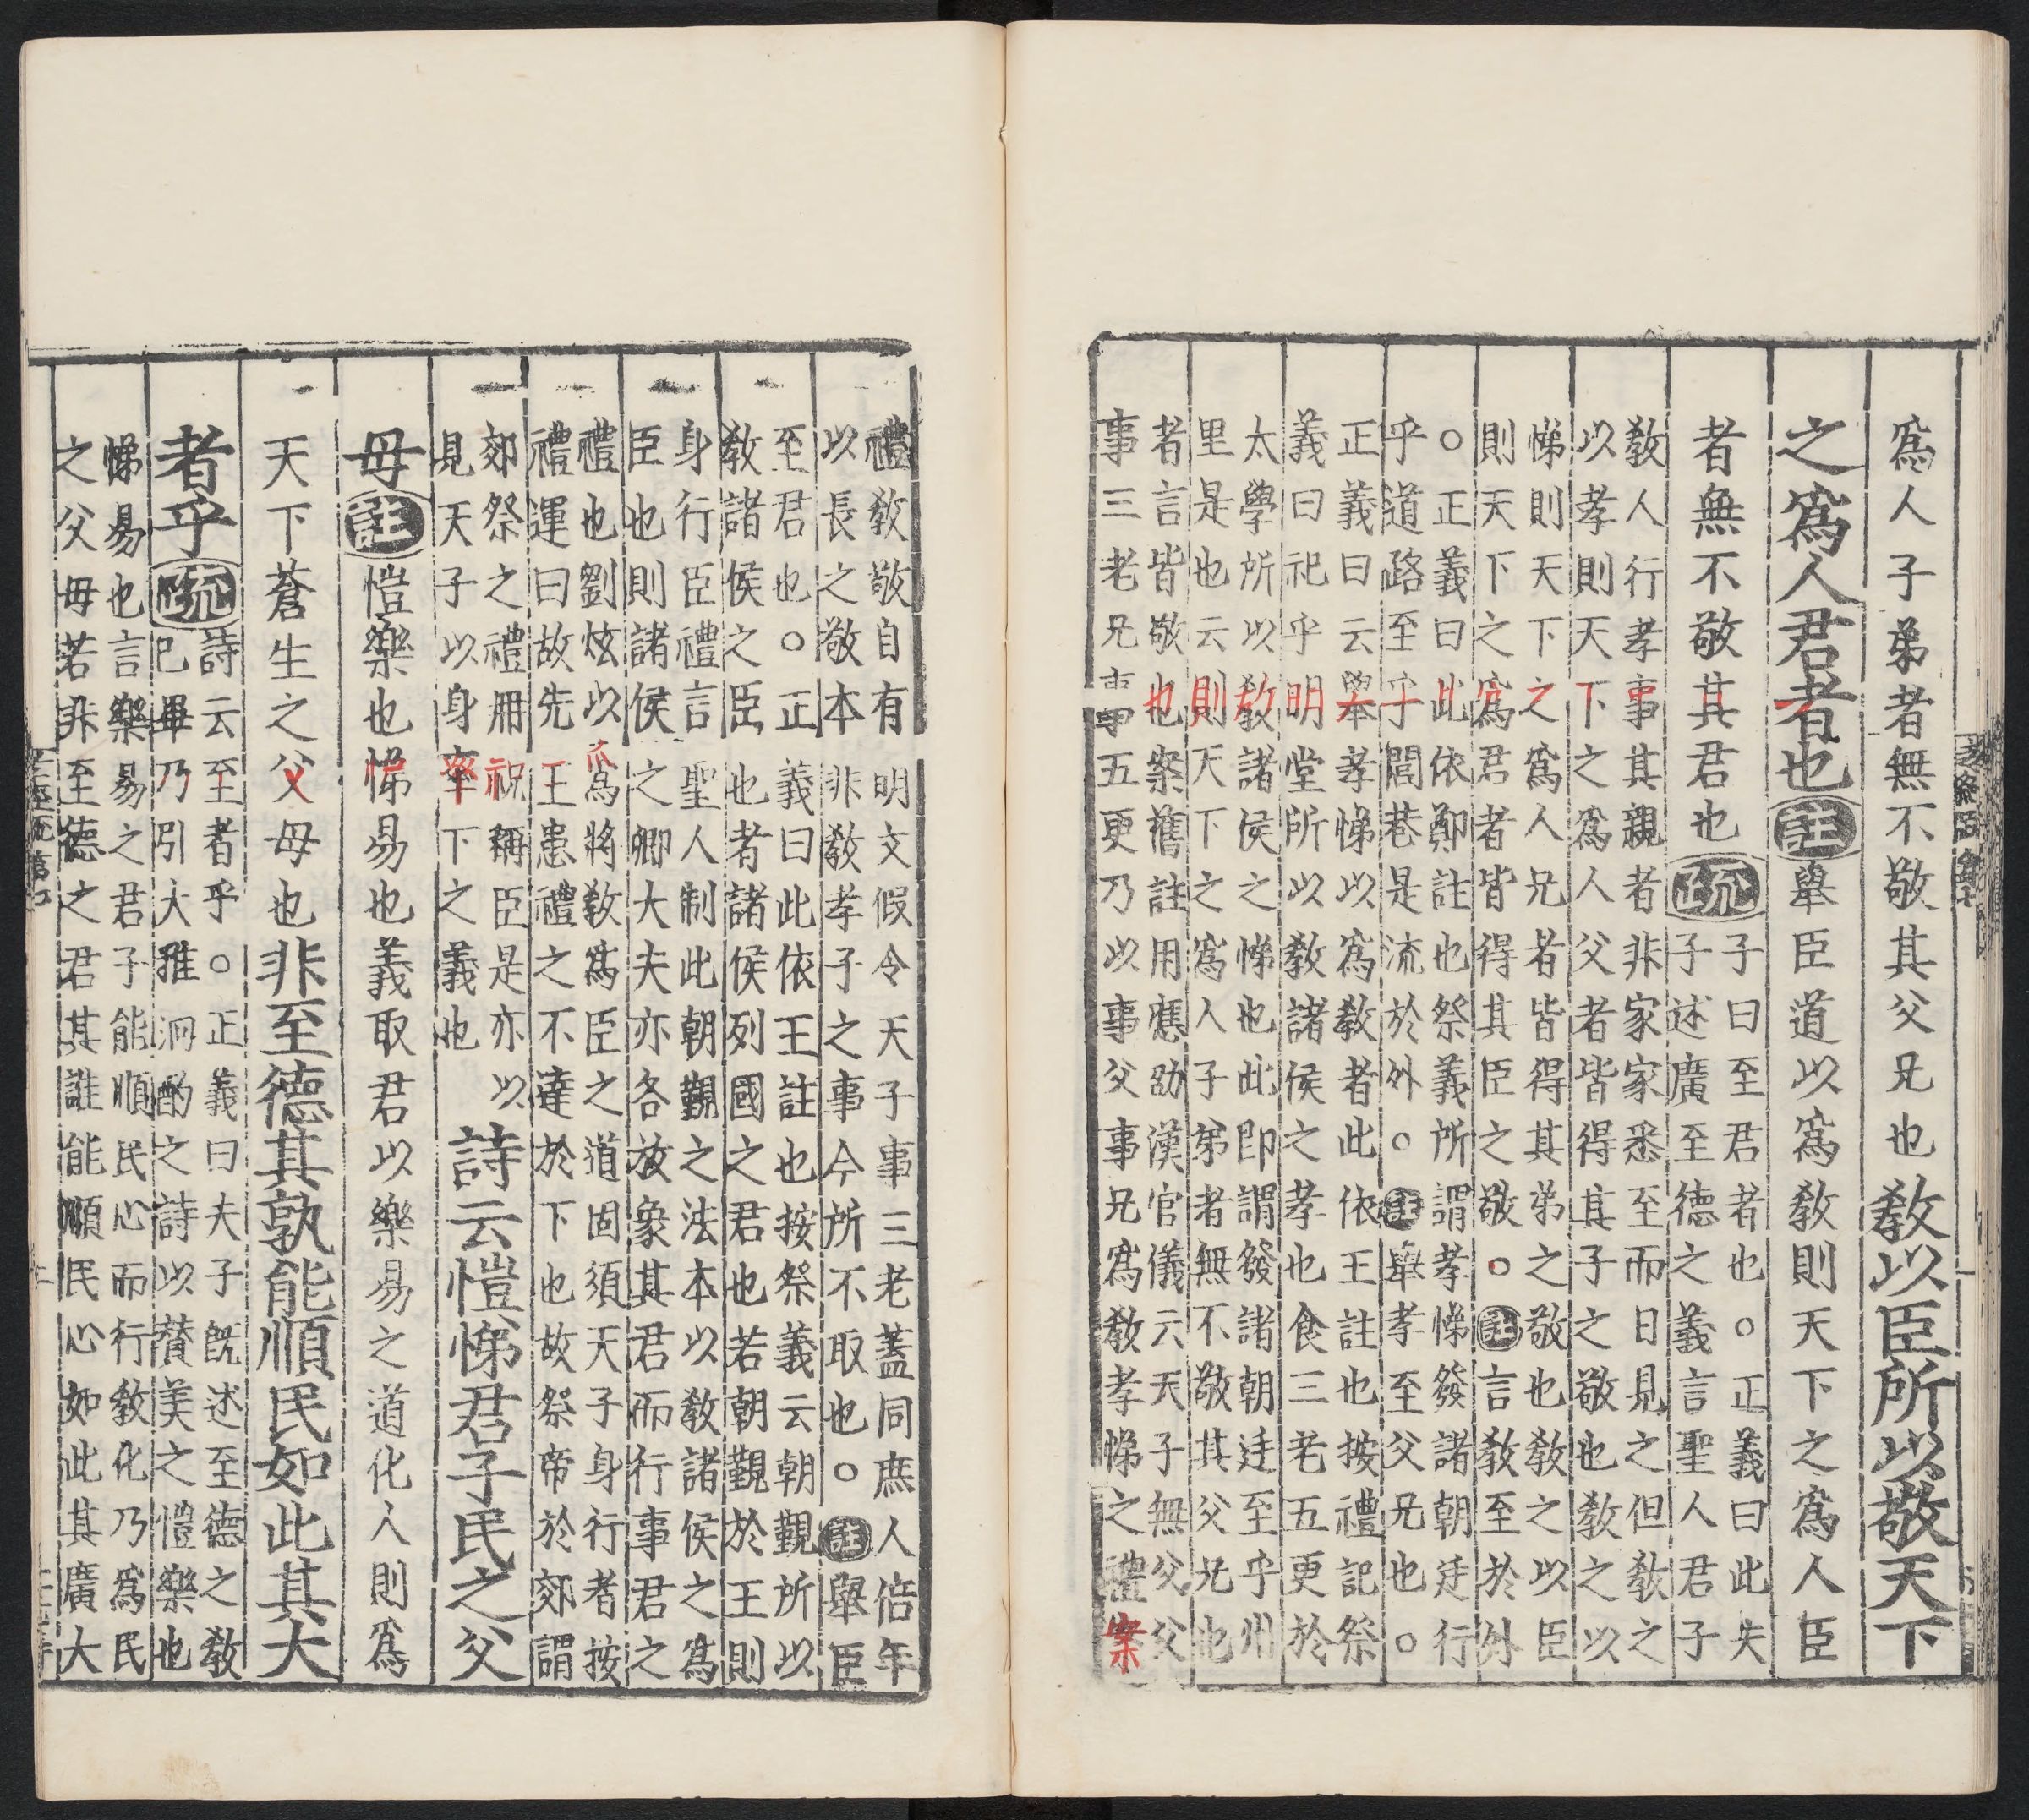 爲人子弟者無不敬其父兄也教以臣所以敬天下
之爲人君者也註舉臣道以爲教則天下之爲人臣
者無不敬其君也疏子曰至君者也○正義曰此夫
子述廣至德之義言聖人君子
教人行孝事其親者非家家悉至而日見之但教之
以孝則天下之爲人父者皆得其子之敬也教之以
悌則天下之爲人兄者皆得其弟之敬也教之以臣
則天下之爲君者皆得其臣之敬○註言教至於外
○正義曰此依鄭註也祭義所謂孝悌發諸朝廷行
乎道路至乎閭巷是流於外○註舉孝至父兄也○
正義曰云舉孝悌以爲教者此依王註也按禮記祭
義曰祀乎明堂所以教諸侯之孝也食三老五更於
太學所以教諸侯之悌也此即謂發諸朝廷至乎州
里是也云則天下之爲人子弟者無不敬其父兄也
者言皆敬也案舊註用應劭漢官儀云天子無父父
事三老兄事五更乃以事父事兄爲教孝悌之禮案
禮教敬自有明文假令天子事三老蓋同庶人倍年
以長之敬本非教孝子之事今所不取也○註舉臣
至君也○正義曰此依王註也按祭義云朝覲所以
教諸侯之臣也者諸侯列國之君也若朝覲於王則
身行臣禮言聖人制此朝覲之法本以教諸侯之爲
臣也則諸侯之卿大夫亦各放象其君而行事君之
禮也劉炫以爲將教爲臣之道固須天子身行者按
禮運曰故先王患禮之不達於下也故祭帝於郊謂
郊祭之禮冊祝稱臣是亦以
見天子以身率下之義也詩云愷悌君子民之父
母註愷樂也悌易也義取君以樂易之道化人則爲
天下蒼生之父母也非至德其孰能順民如此其大
者乎疏詩云至者乎○正義曰夫子旣述至德之教
已畢乃引大雅泂酌之詩以贊美之愷樂也
悌易也言樂易之君子能順民心而行教化乃爲民
之父母若非至德之君其誰能順民心如此其廣大